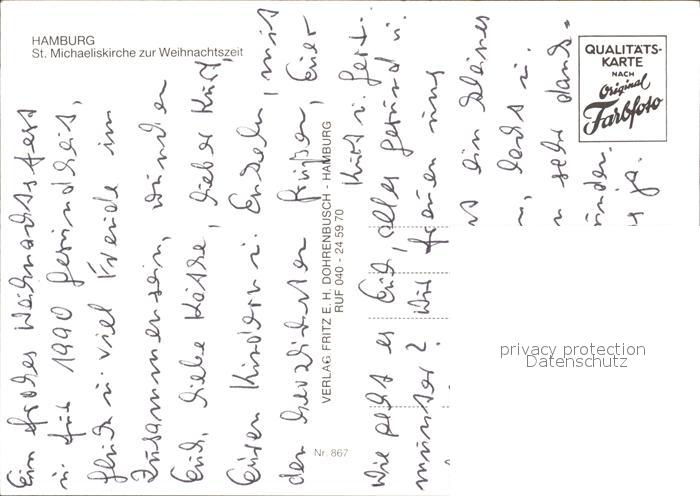 HAMBURG
St. Michaeliskirche zur Weihnachtszeit
QUALITÄTS-
KARTE
NACH
Original
Farbfoto
Ein frohes Weihnachtsfest
u. für 1990 Gesundheit,
Glück u. viel Freude im
Zusammensein, wünschen
Euch, liebe Käthe, lieber Kurt,
Euren Kindern u. Enkeln, mit
den herzlichsten Grüßen, Eure
Kurt u. Gert.
Wie geht es Euch, alles gesund u.
munter? Wir freuen uns
ein kleines
sehr dank-
ja.
VERLAG FRITZ E. H. DOHRENBUSCH - HAMBURG
RUF 040 - 24 59 70
Nr. 867
privacy protection
Datenschutz